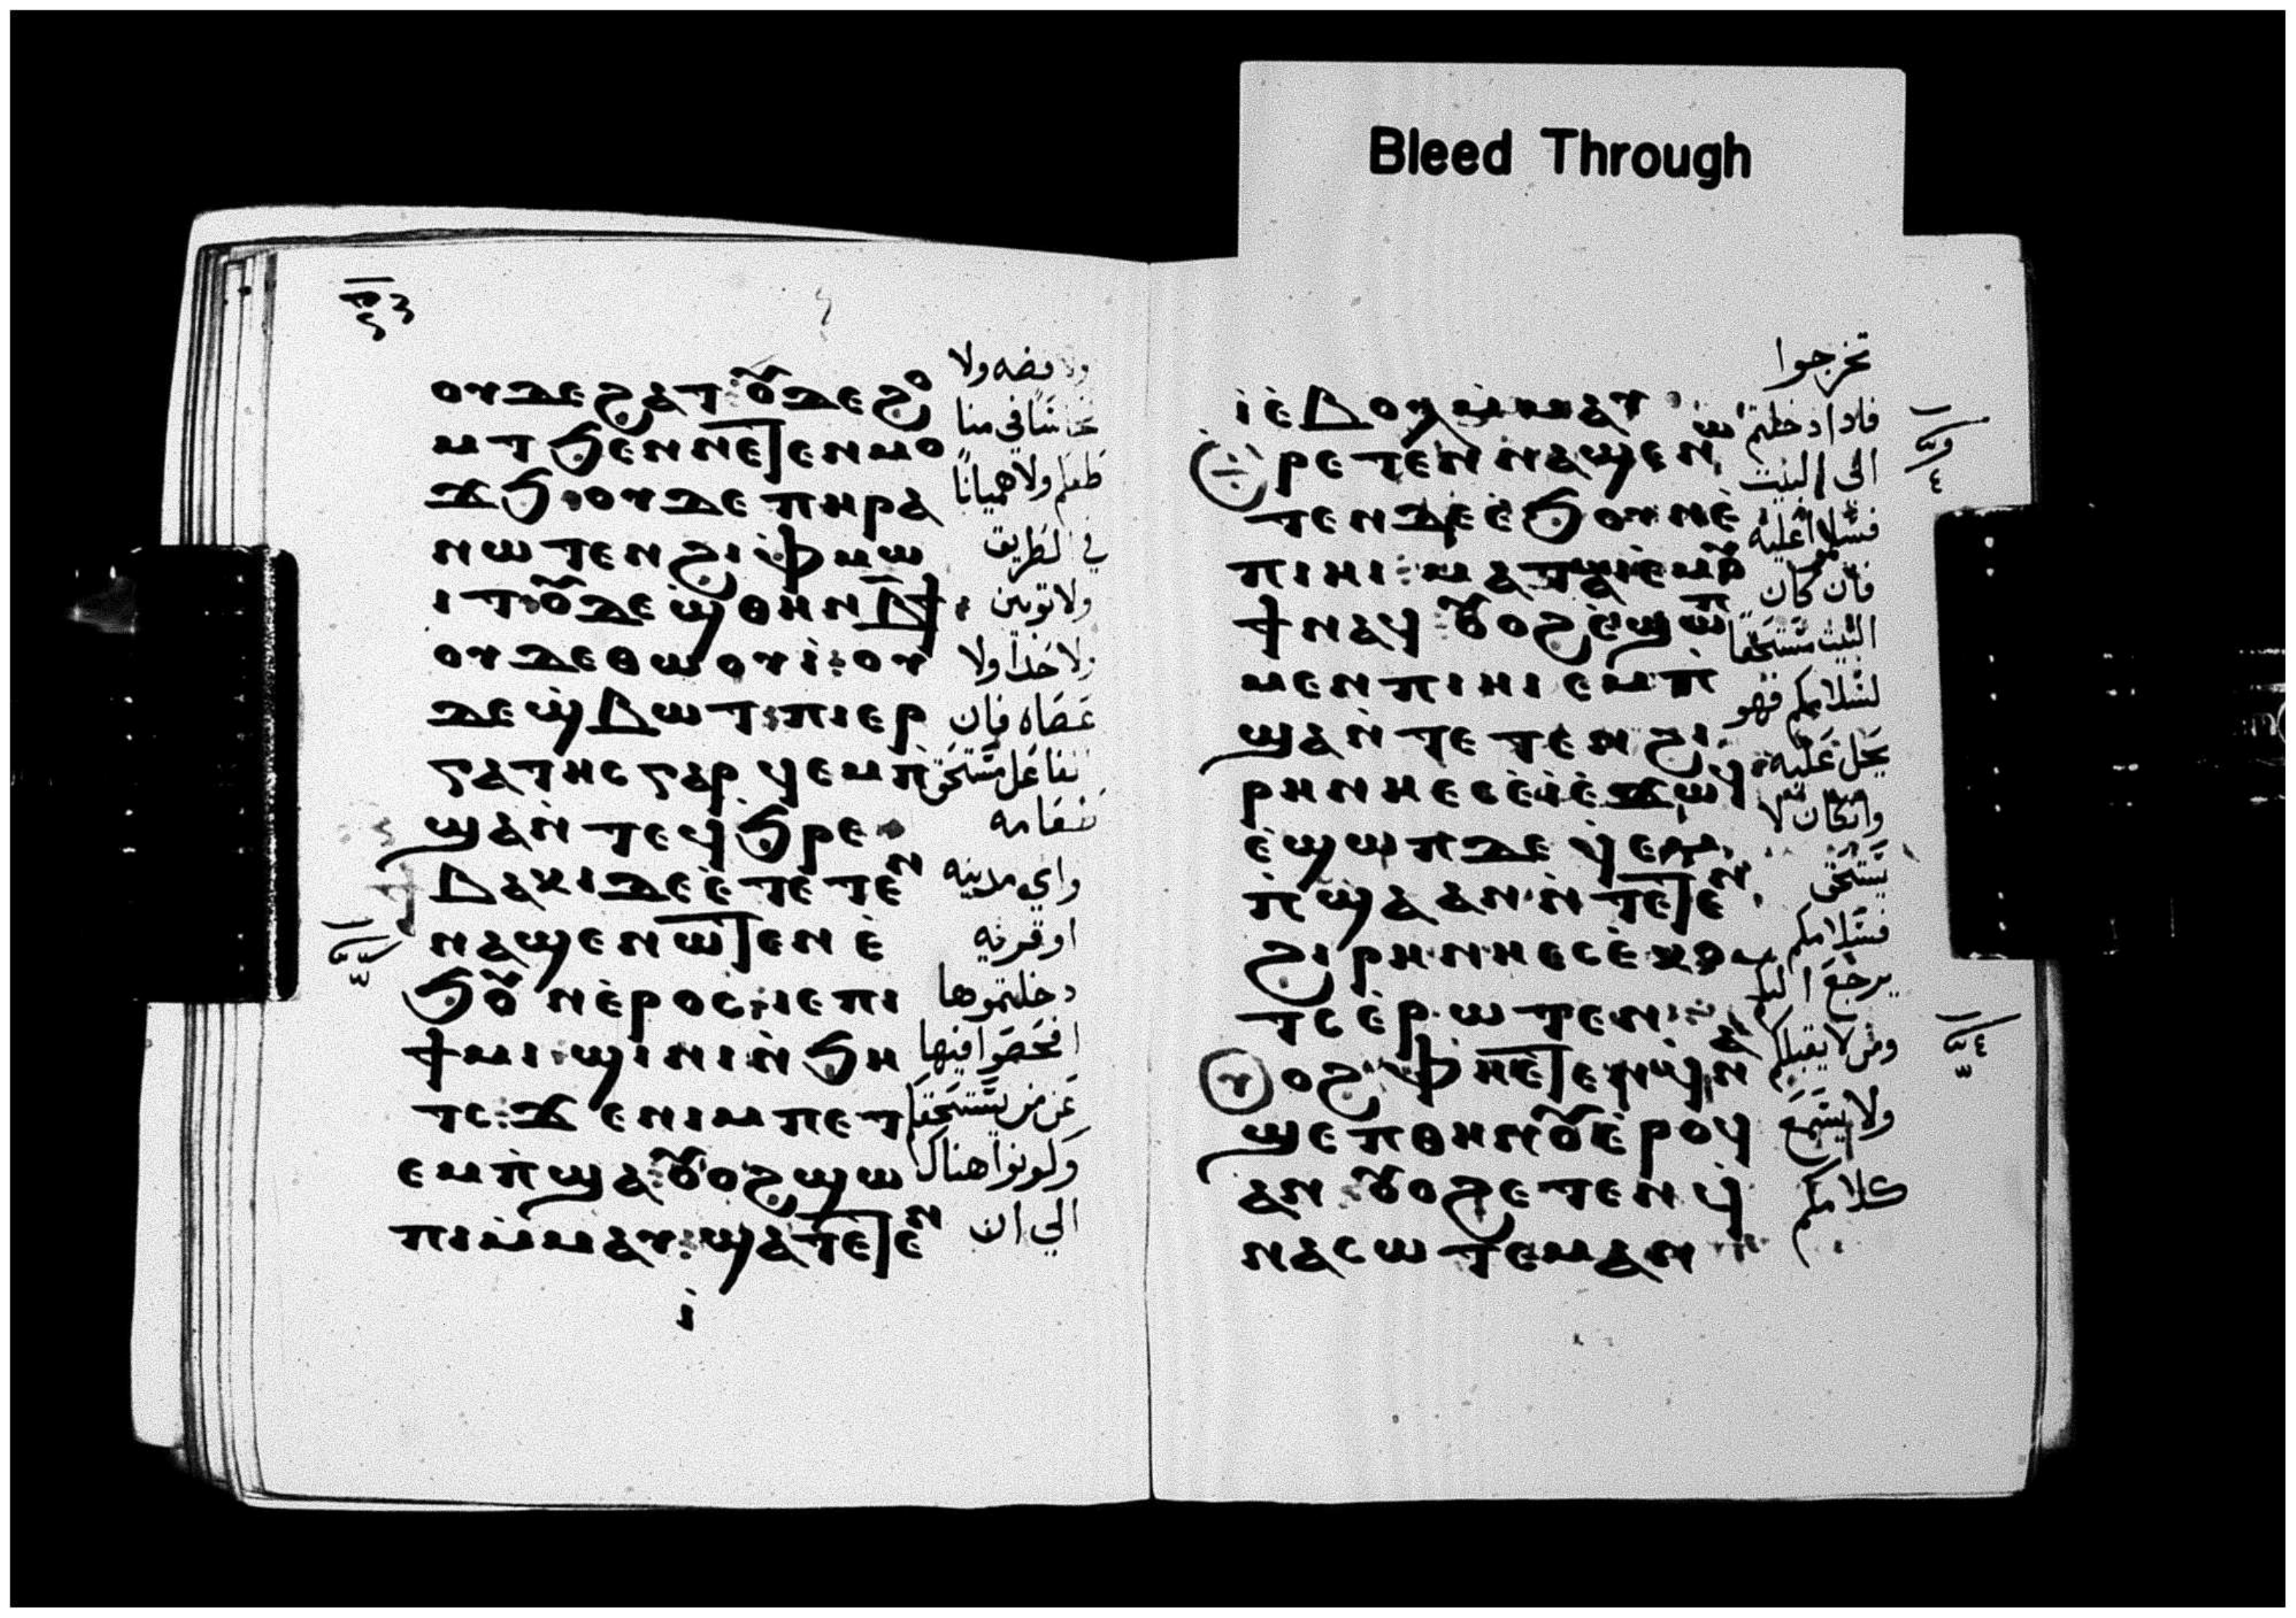 ⲟⲩⲇⲉϩⲁⲧ:ⲟⲩⲇⲉϩⲟ ولا فضه ولا
ⲙⲧϧⲉⲛⲛⲉⲧⲉⲛⲙⲟ نحاسًا في منا
ϫϧ:ⲟⲩⲇⲉⲡⲏⲣⲁ طقكم ولا هميانًا
ⲛⲱⲧⲉⲛϩⲓⲫⲙⲱ في الطريق
ⲓⲧ:ⲟⲩⲇⲉϣⲑⲏⲛⲃϯ: ولا ثوبين
ⲟⲩⲇⲉⲑⲱⲟⲩⲓ:ⲟⲩ ولا حذاً ولا
ⲇⲉϣ̀ⲃⲱⲧ:ⲡⲓⲉⲣ عصاه فان
ⲅⲁⲧⲏⲥⲅⲁⲣϥⲉⲙⲡ̀ الفاعل مستحق
ϣⲁⲛ̀ⲧⲉϥϧⲣⲉ طعامه
ⲃⲁⲕⲓⲇⲉⲉ̀ⲧⲉⲧⲉⲛ واي مدينه
ⲛⲁϣⲉⲛⲱⲧⲉⲛⲉ̀ اوقريه
ϧⲟⲩⲛⲉ̀ⲣⲟⲥ:ⲓⲉⲡⲓ دخلتموها
ϯⲙⲓ:ϣⲓⲛⲓⲛ̀ϧⲏ افحصوا فيها
ⲧⲥ:ϫⲉⲛⲓⲙⲡⲉⲧ عن من يستحق
ⲉⲙⲡ̀ϣⲁ:ⲟⲩⲟϩϣⲱ وكونوا هناك
ⲡⲓⲙ̀ⲙⲁⲩ:ϣⲁⲧⲉⲧⲉⲛ الي ان
ⲓ̀
Bleed Through
تخرجوا
ⲓ̀ⲉ̀ⲃⲟⲗⲙ̀ⲙⲁⲩ: فاذا دخلتم
ⲣⲉⲧⲉⲛⲛⲁϣⲉⲛⲱ الى البيت
ⲧⲉⲛⲇⲉⲉ̀ϧⲟⲩⲛⲉ̀ فسلموا عليه
ⲡⲓⲏⲓ: فان كان
ϥ:ⲟⲩⲟϩⲉ̀ϣⲱⲡ البيت مستحقًا
ⲙⲉⲛⲡⲓⲏⲓⲉⲙⲡ̀ لسلامكم فهو
ϣⲁⲛ̀ⲧⲉⲧⲉⲛϩⲓ يحل عليه
ⲣⲏⲛⲏⲉⲥⲉ̀ⲓ̀ⲉ̀ϫⲱϥ وان كان لا
ⲉ̀ϣⲱⲡⲇⲉϥ̀ⲉⲙ يستحق
ⲡ̀ϣⲁⲁⲛ:ⲛ̀ⲧⲉⲧⲉⲛ فسلامكم
ϩⲓⲣⲏⲛⲏⲉⲥⲉ̀ⲕⲟ يرجع اليكم
ⲧⲥⲉ̀ⲣⲱⲧⲉⲛ: ومن لا يقبلكم
ⲟϩ:ⲫⲏⲉⲧⲉⲛϥ̀ⲛⲁ ولا يسمع
ϣⲉⲡⲑⲏⲛⲟⲩⲉ̀ⲣⲟϥ
ⲁⲛ:ⲟⲩⲟϩⲉⲧⲉⲛϥ̀ كلامكم
ⲛⲁⲥⲱⲧⲉⲙⲁⲛ